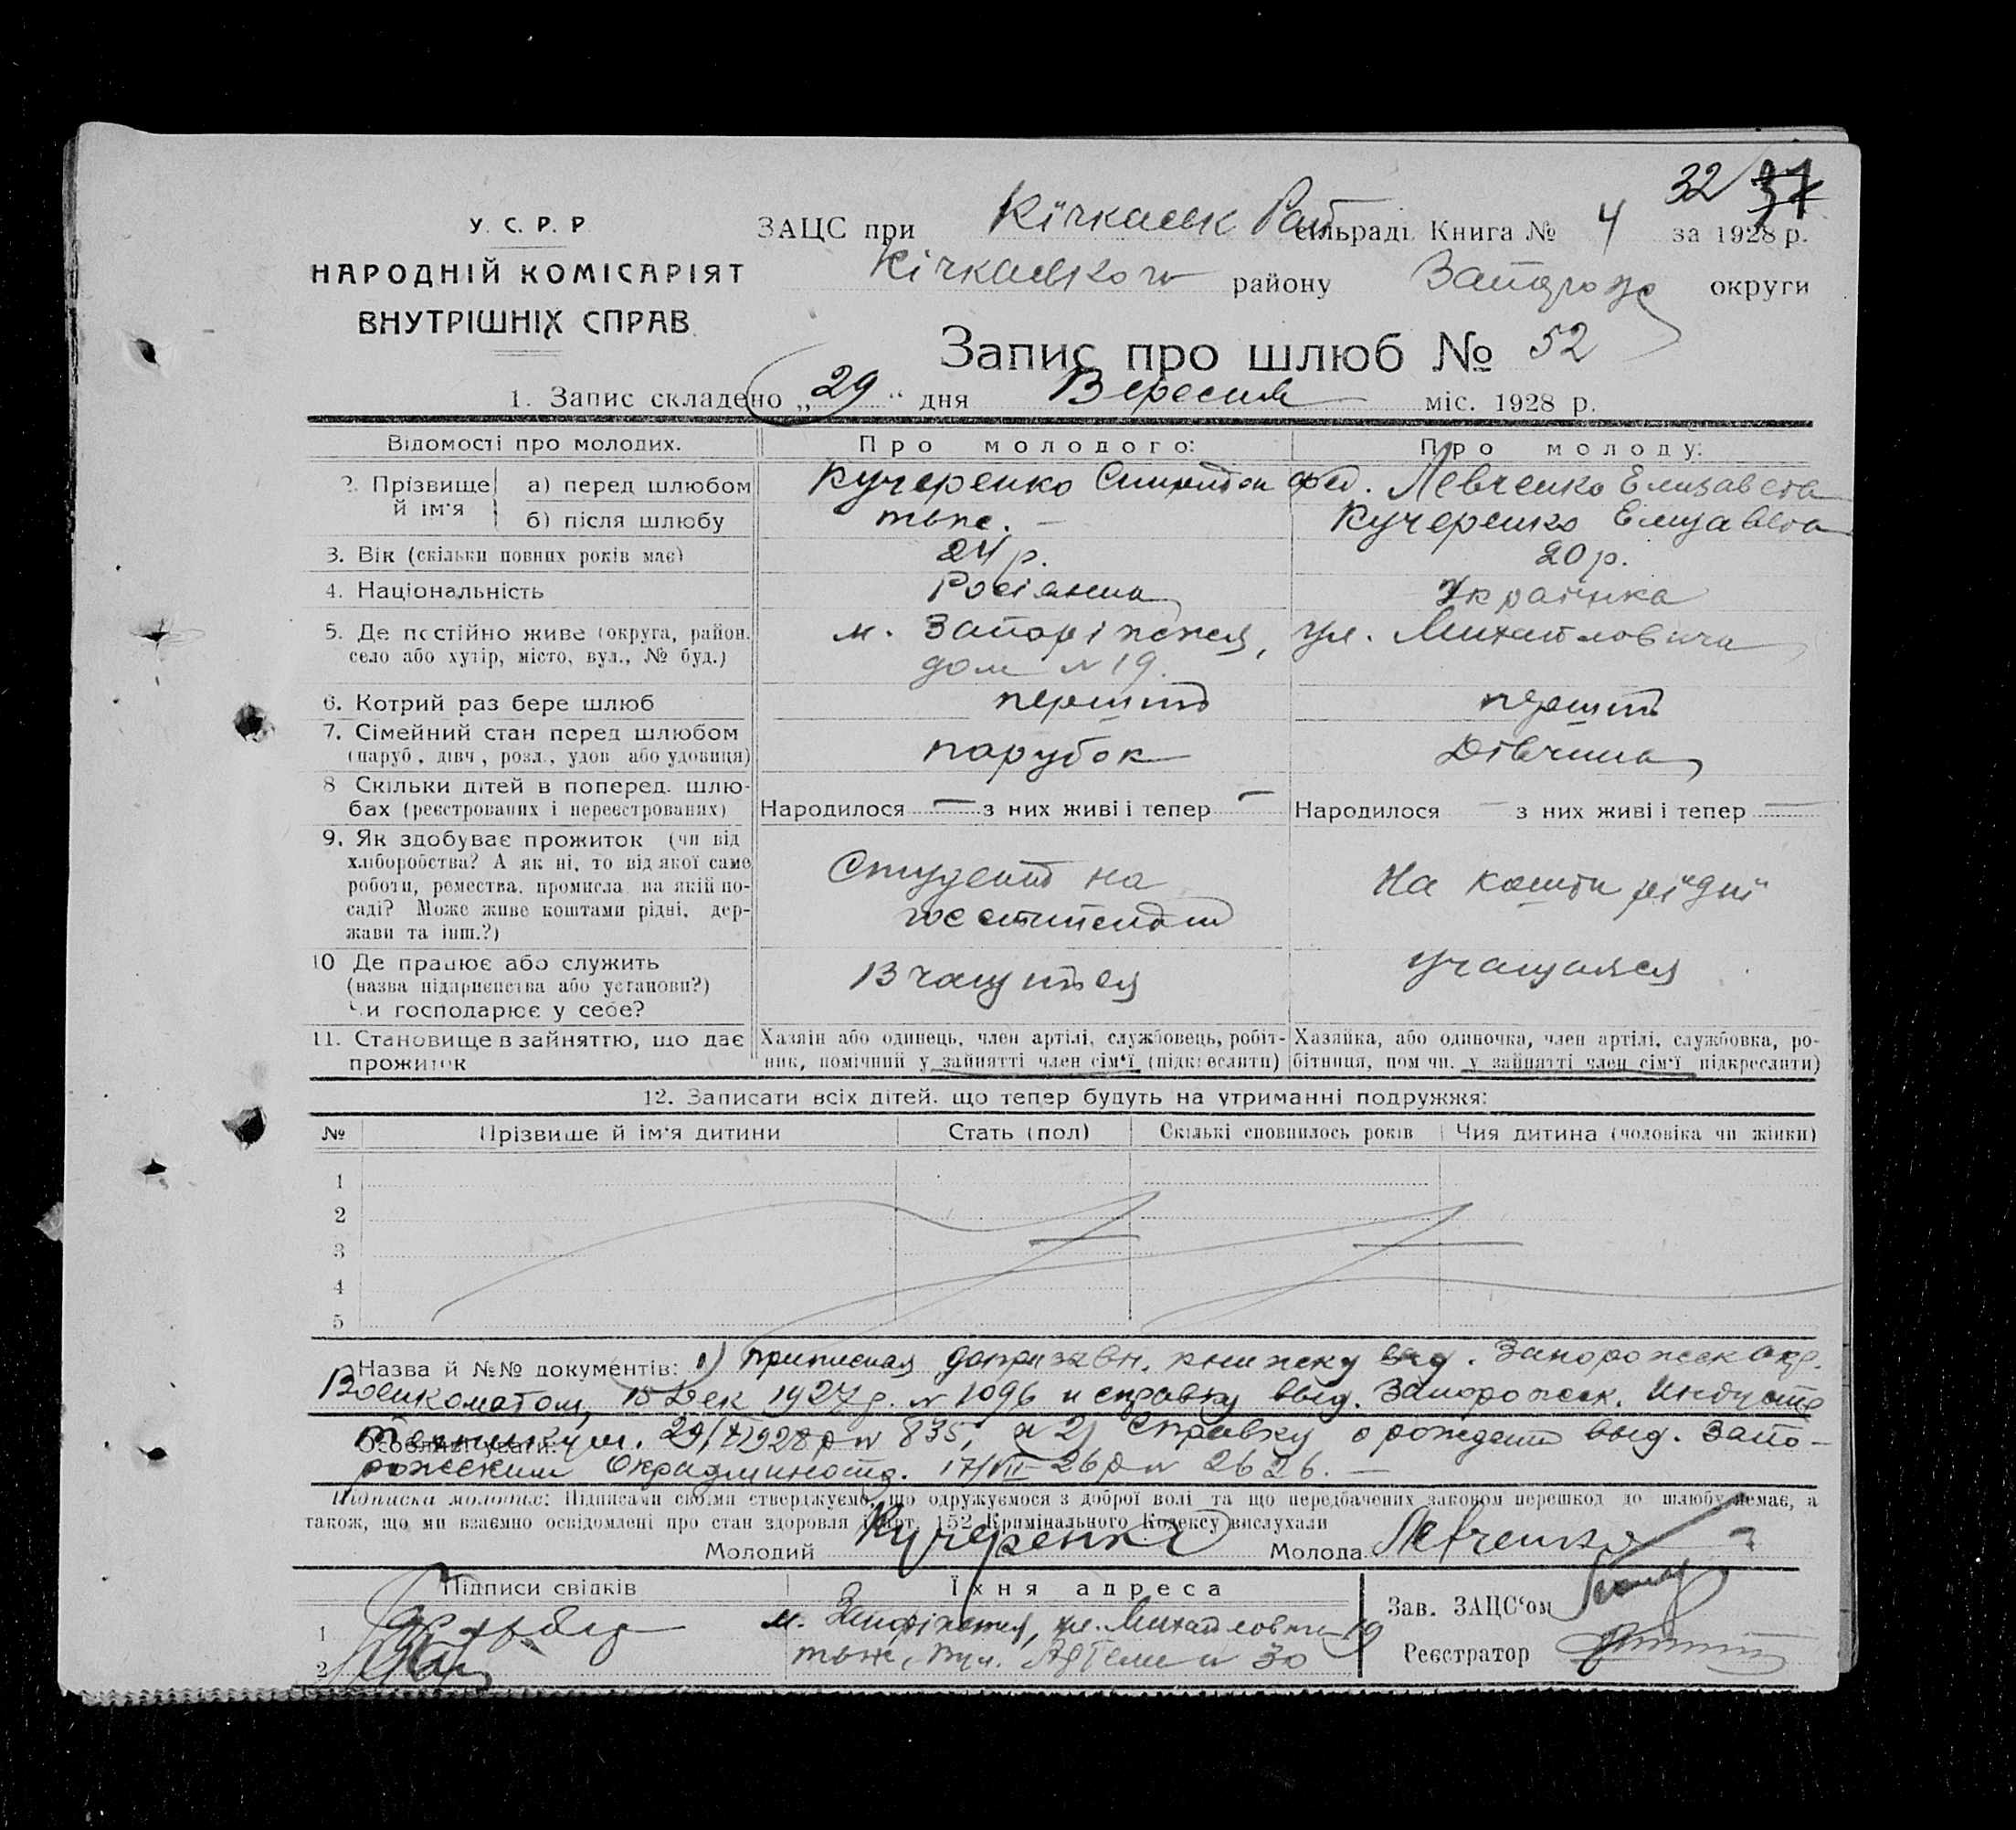 32 37
У. С. Р. Р.
НАРОДНІЙ КОМІСАРІЯТ
ВНУТРІШНІХ СПРАВ
ЗАЦС при Кічкаськ Рай сільраді Книга № 4 за 1928 р.
Кічкаського району Запоріж округи
Запис про шлюб № 52
1. Запис складено „29“ дня Вересня міс. 1928 р.
Відомості про молодих. Про молодого: Про молоду:
2. Прізвище й ім'я а) перед шлюбом Кучеренко фед. Левченко Елизавета
б) після шлюбу теж. – Кучеренко Елизавета
3. Вік (скільки повних років має) 24 р. 20 р.
4. Національність Росіянин Українка
5. Де постійно живе (округа, район, м. Запоріжжя, ул. Михайловича
село або хутір, місто, вул., № буд.) дом № 19.
6. Котрий раз бере шлюб перший перший
7. Сімейний стан перед шлюбом парубок Дівчина
(паруб., дівч., розл., удов. або удовиця)
8 Скільки дітей в поперед. шлю-
бах (реєстрованих і нереєстрованих) Народилося – з них живі і тепер – Народилося – з них живі і тепер –
9. Як здобуває прожиток (чи від
хліборобства? А як ні, то від якої саме Студент на На кошти рідні
роботи, ремества, промисла, на якій по-
саді? Може живе коштами рідні, дер-
жави та інш.?)
10 Де працює або служить Учащаяся
(назва підприємства або установи?)
Чи господарює у себе?
11. Становище в зайняттю, що дає Хазяїн або одинець, член артілі, службовець, робіт- Хазяйка, або одиночка, член артілі, службовка, ро-
прожиток ник, помічний у зайнятті член сім'ї (підкреслити) бітниця, пом чн. у зайнятті член сім'ї підкреслити)
12. Записати всіх дітей, що тепер будуть на утриманні подружжя:
№ Прізвище й ім'я дитини Стать (пол) Скількі сповнилось років Чия дитина (чоловіка чи жінки)
1
2
3
4
5
Назва й №№ документів: 1) приписная допризывн. книжку выд. Запорожск Окр.
Военкоматом, 15 Дек 1927 р. № 1096 и справку выд. Запорожск. Индустр
Особливі уваги: Техникум. 1928 р № 835, и 2) Справку о рождении выд. Запо-
рожским Окрадминотд. 17/VII-26 р № 2626. –
Підписка молодих: Підписами своїми стверджуємо, що одружуємося з доброї волі та що передбачених законом перешкод до шлюбу немає, а
також, що ми взаємно освідомлені про стан здоровля і арт. 152 Кримінального Кодексу вислухали
Молодий Кучеренко Молода Левченко
Підписи свідків Їхня адреса Зав. ЗАЦС'ом
1 м. Запоріжжя, ул. Михайлович 19
2 теж, вул. Артема № 30 Реєстратор